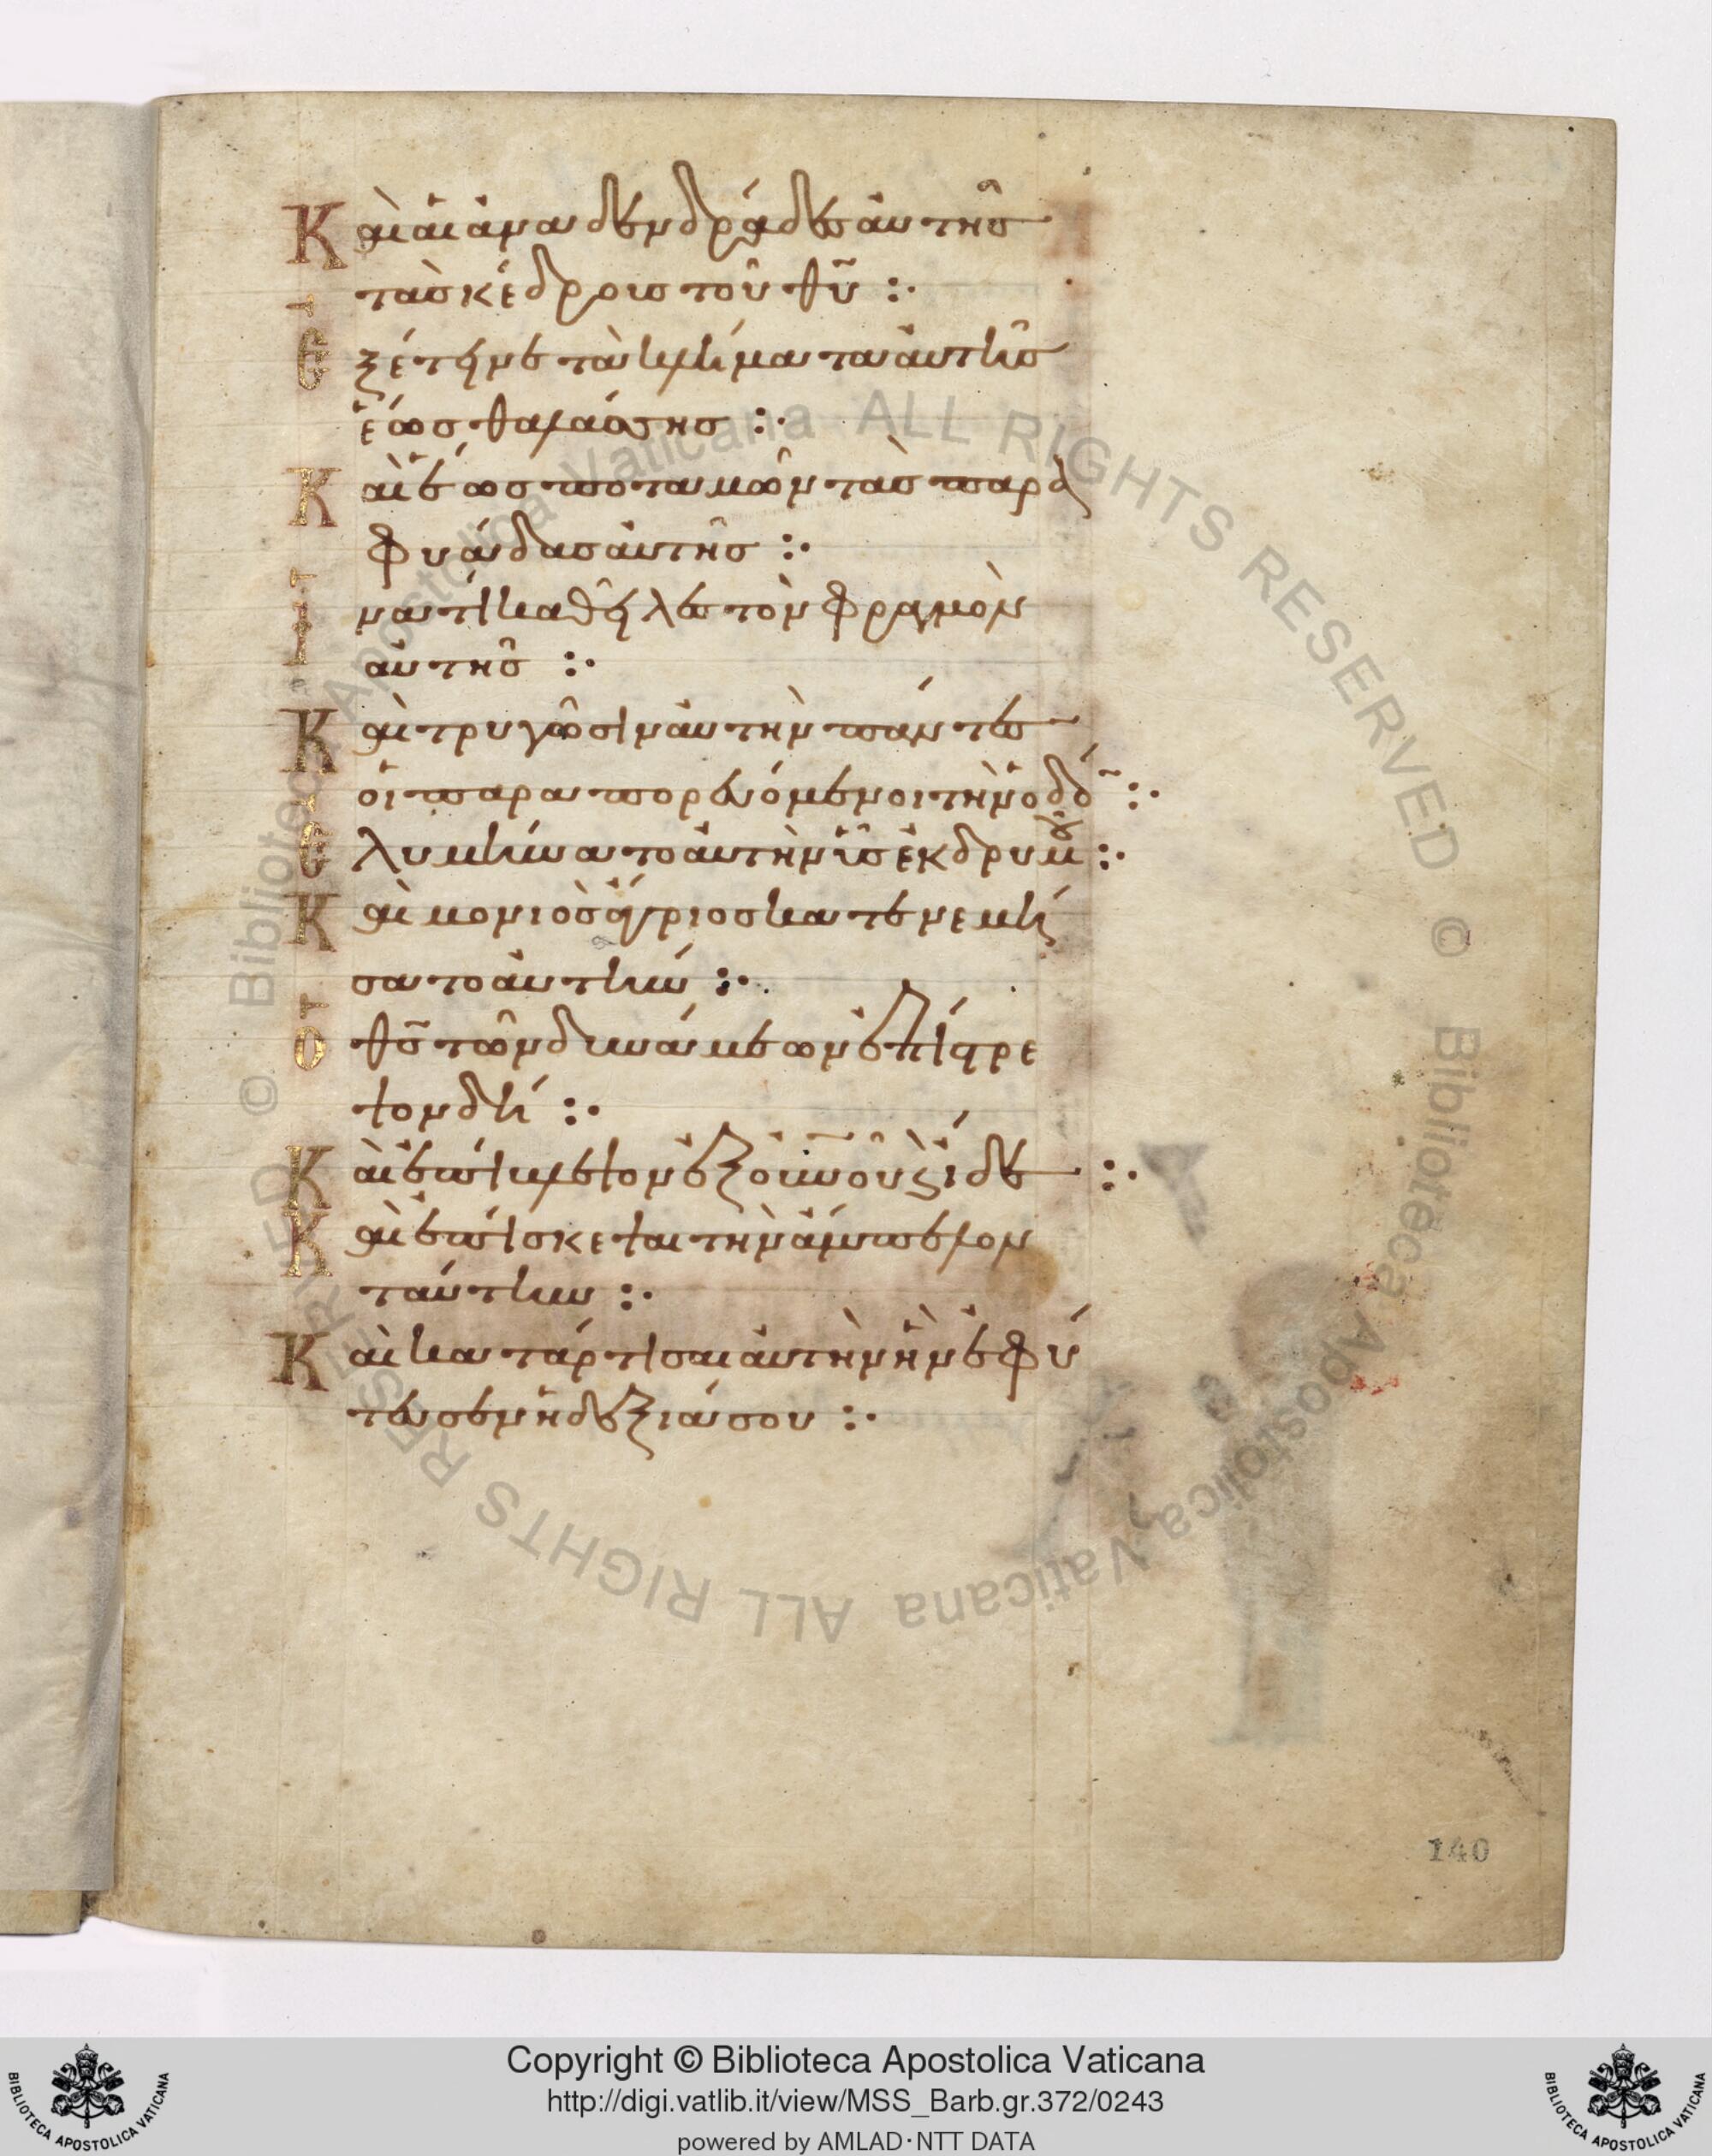 Καὶ αἱ ἀναδενδράδες αὐτῆς
τὰς κέδρους τοῦ θῦ :·
Ἐξέτεινε τὰ κλήματα αὐτῆς
ἕως θαλάσσης :·
Καὶ ἕως ποταμῶν τὰς παρα
φυάδας αὐτῆς :·
Ἱνατί καθεῖλες τὸν φραγμὸν
αὐτῆς :·
Καὶ τρυγῶσιν αὐτὴν πάντες
οἱ παραπορευόμενοι τὴν ὁδό :·
Ἐλυμήνατο αὐτὴν ὗς ἐκ δρυμοῦ :·
Καὶ μονιὸς ἄγριος κατενεμή
σατο αὐτήν :·
Ὁ θς τῶν δυνάμεων ἐπίστρε
ψον δή :·
Καὶ ἐπίβλεψον ἐξ οὐνοῦ καὶ ἴδε :·
Καὶ ἐπίσκεψαι τὴν ἄμπελον
ταύτην :·
Καὶ κατάρτισαι αὐτὴν ἣν ἐφύ
τευσεν ἡ δεξιά σου :·
140
© Biblioteca Apostolica Vaticana ALL RIGHTS RESERVED © Biblioteca Apostolica Vaticana ALL RIGHTS RESERVED
Copyright © Biblioteca Apostolica Vaticana
http://digi.vatlib.it/view/MSS_Barb.gr.372/0243
powered by AMLAD·NTT DATA
BIBLIOTECA APOSTOLICA VATICANA
BIBLIOTECA APOSTOLICA VATICANA